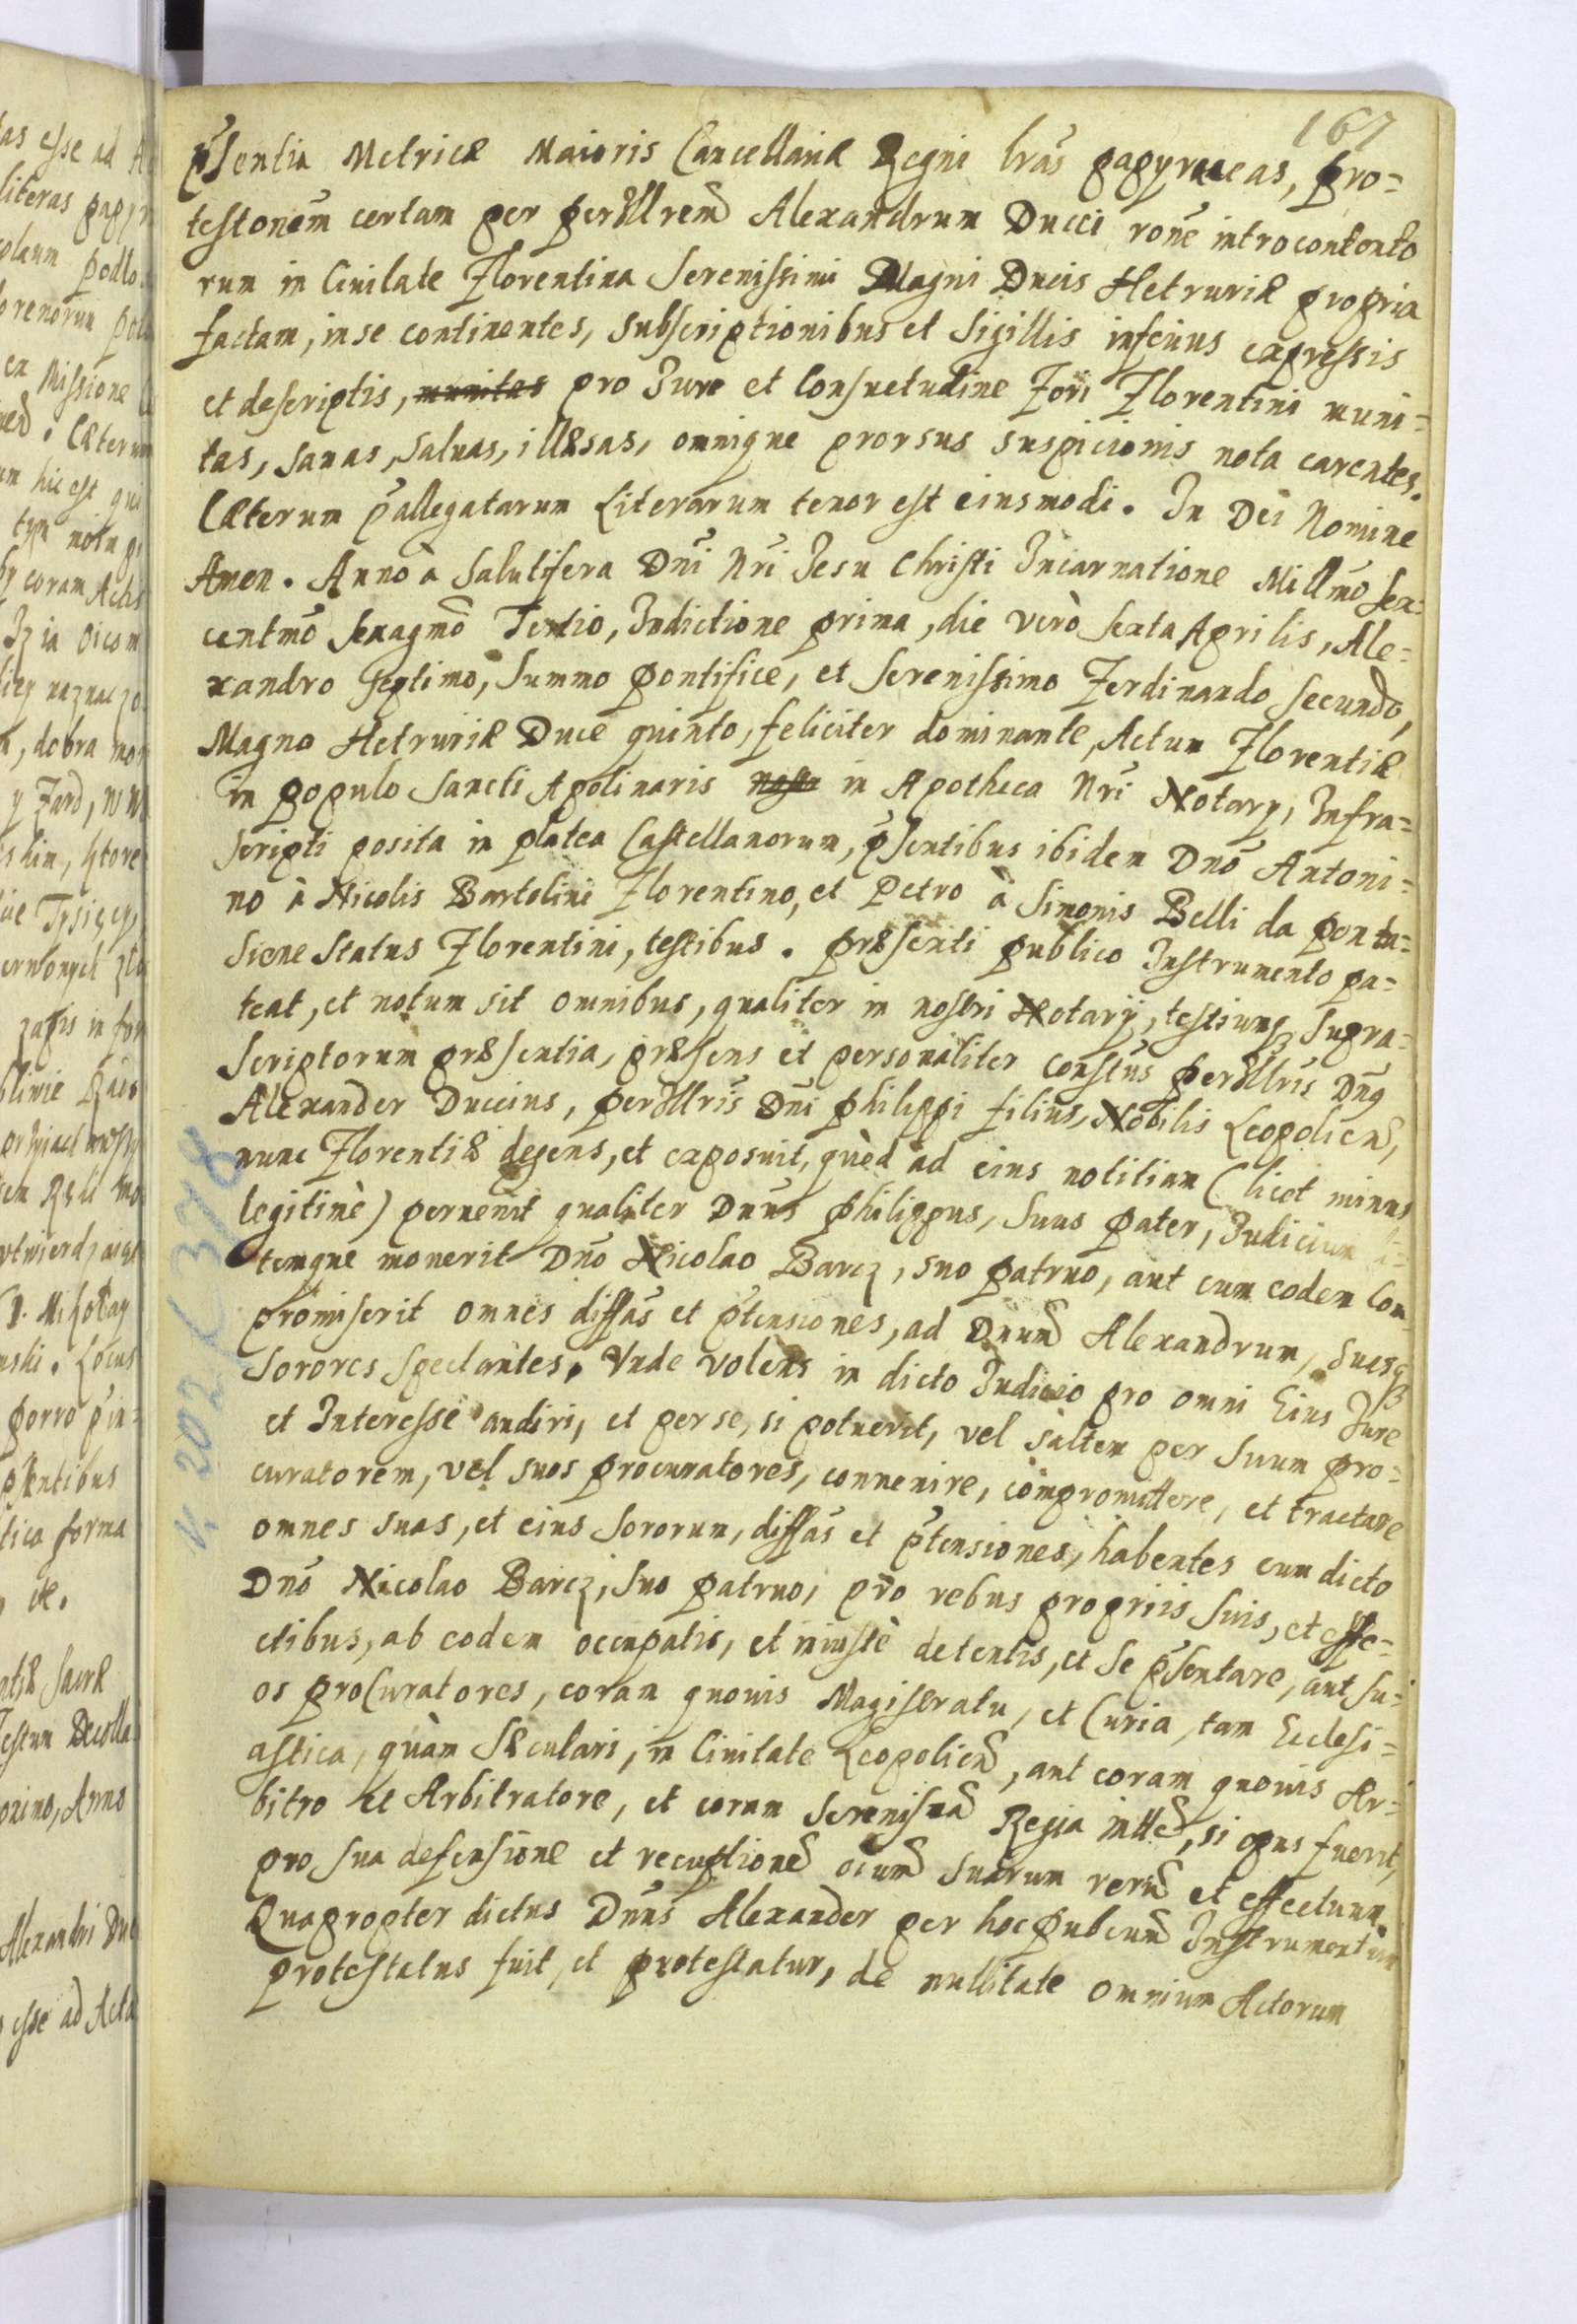 167
pñsentia Metricæ Maioris Cancellariæ Regni lrãs papyraceas, pro=
testonẽm certam per perIllrem Alexandrum Ducci rõne introcontento
rum in Ciuitate Florentina Serenissimi Magni Ducis Hetruriæ propria
factam, in se continentes, subscriptionibus et Sigillis inferius expressis
et descriptis, munitas pro Jure et Consuetudine Fori Florentini muni=
tas, sanas, saluas, illæsas, omnique prorsus suspicionis nota carentes.
Cæterum p̃allegatarum Literarum tenor est eiusmodi. In Dei Nomine
Amen. Anno à Salutifera Dñi Nri Jesu Christi Incarnatione Millmo Sex=
centmõ Sexagmõ Tertio, Indictione prima, die verò sexta Aprilis, Ale=
xandro Septimo, Summo Pontifice, et Serenissimo Ferdinando Secundo,
Magno Hetruriæ Duce quinto, feliciter dominante, Actum Florentiæ
in populo Sancti Apolinaris in Apotheca Nri Notarÿ, Infra=
scripti posita in platea Castellanorum, p̃sentibus ibidem Dnõ Antoni=
no à Nicolis Bartolini Florentino, et Petro à Simonis Belli da Ponta=
sieue Status Florentini, testibus. Præsenti publico Instrumento pa=
teat, et notum sit omnibus, qualiter in nostri Notarÿ, testiumqz supra=
scriptorum præsentia, præsens et personaliter constũs PerIllris Dñus
Alexander Duccius, perIllris Dñi Philippi filius, Nobilis Leopolien,
nunc Florentiæ degens, et exposuit, quòd ad eius notitiam (licet minus
legitimè) peruenit qualiter Dnũs Philippus, suus Pater, Iudicium
temque mouerit Dnõ Nicolao Barcz, suo patruo, aut cum eodem Com=
promiserit omnes diffãs et p̃tensiones, ad Dnum Alexandrum, suasqz
Sorores spectantes. Vnde volens in dicto Iudicio pro omni Eius Jure
et Interesse audiri, et per se, si potuerit, vel saltem per suum pro=
curatorem, vel suos procuratores, conuenire, compromittere, et tractare
omnes suas, et eius Sororum, diffãs et p̃tensiones, habentes cum dicto
Dnõ Nicolao Barcz, suo patruo, pro rebus propriis suis, et effe=
ctibus, ab eodem occupatis, et iniustè detentis, et se p̃sentare, aut su=
os proCuratores, coram quouis Magistratu, et Curia, tam Ecclesi=
astica, quàm Sæculari, in Ciuitate Leopolien, aut coram quouis Ar=
bitro et Arbitratore, et coram Serenisma Regia Mtte, si opus fuerit,
pro sua defensione et recuptione oium suarum rerum et effectuum.
Quapropter dictus Dnũs Alexander per hoc Pubcum Instrumentum
protestatus fuit, et protestatur, de nullitate omnium Actorum